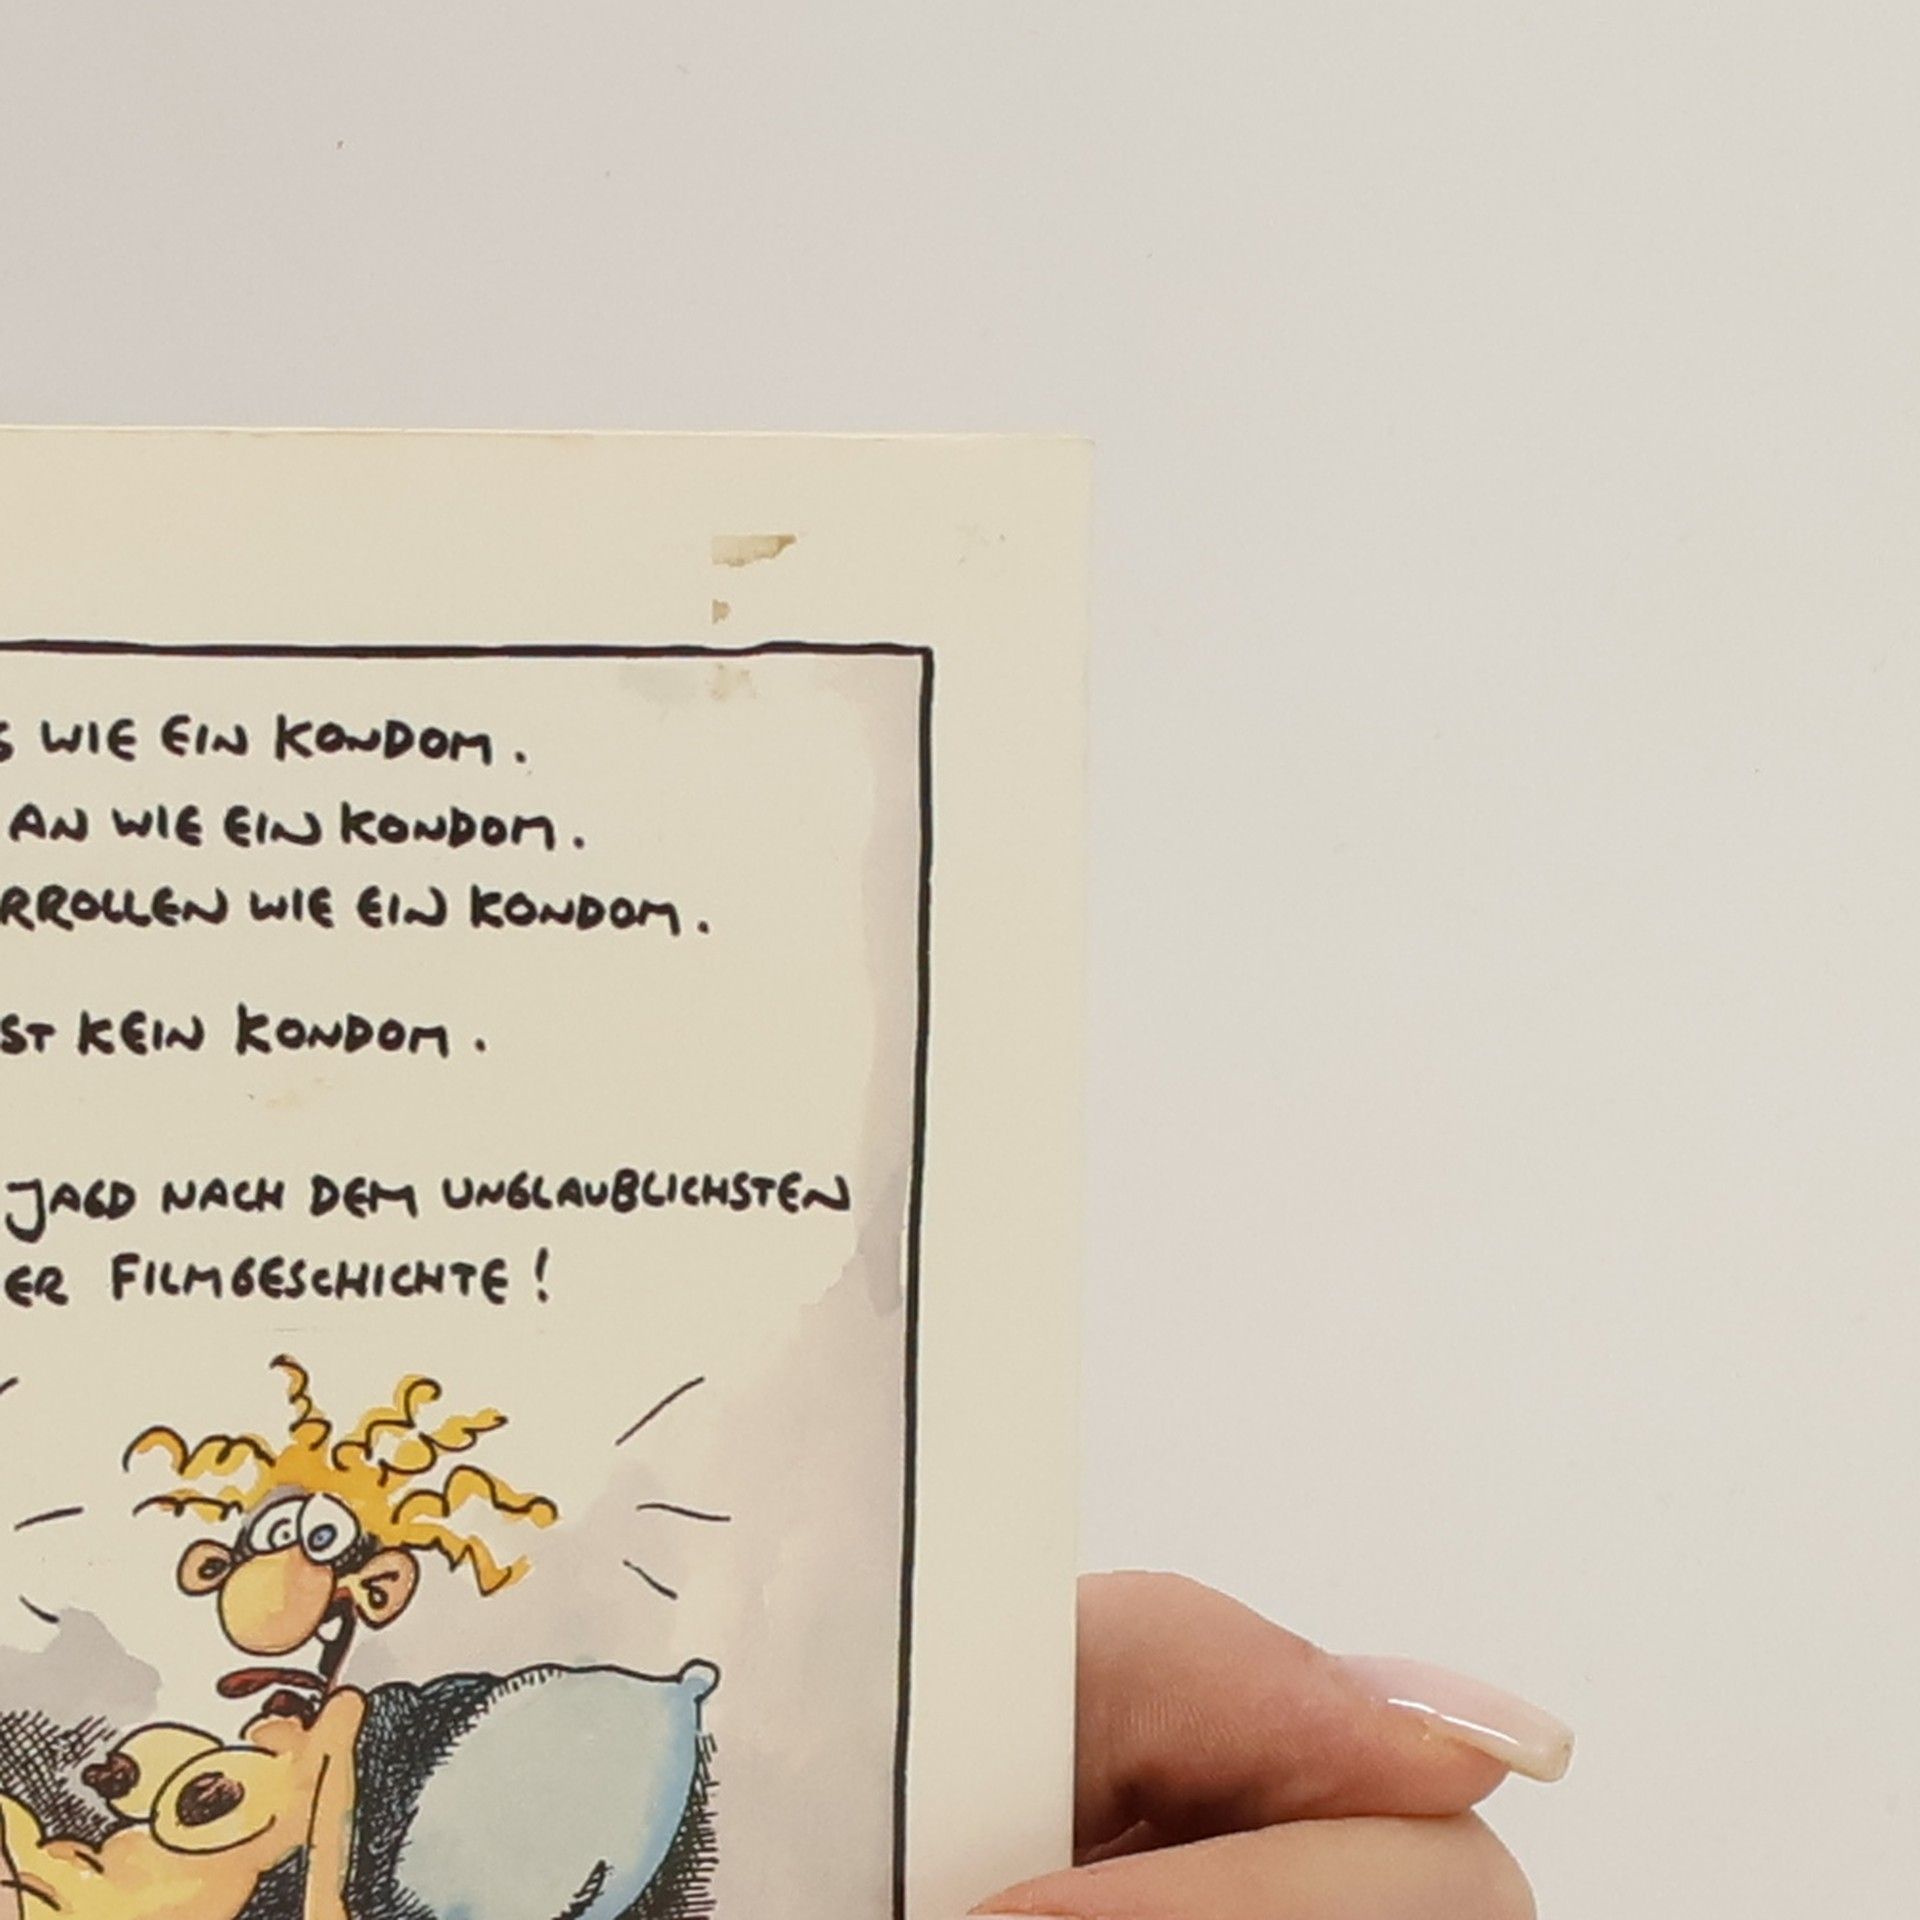 WIE EIN KONDOM.
AN WIE EIN KONDOM.
RROLLEN WIE EIN KONDOM.
ST KEIN KONDOM.
JAGD NACH DEM UNGLAUBLICHSTEN
ER FILMGESCHICHTE!